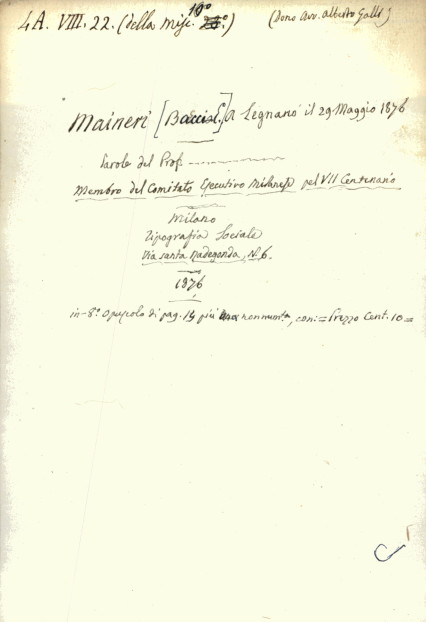 4A. VIII. 22. (della misc. 10°) (Dono Avv. Alberto Galli)
Maineri [Baccio E.] A Legnano il 29 Maggio 1876
Parole del Prof.
Membro del Comitato Esecutivo Milanese pel VII Centenario
Milano
Tipografia Sociale
Via Santa Radegonda, N. 6.
1876
in-8° opuscolo di pag. 14 più una non num.ta, con: = Prezzo Cent. 10 =